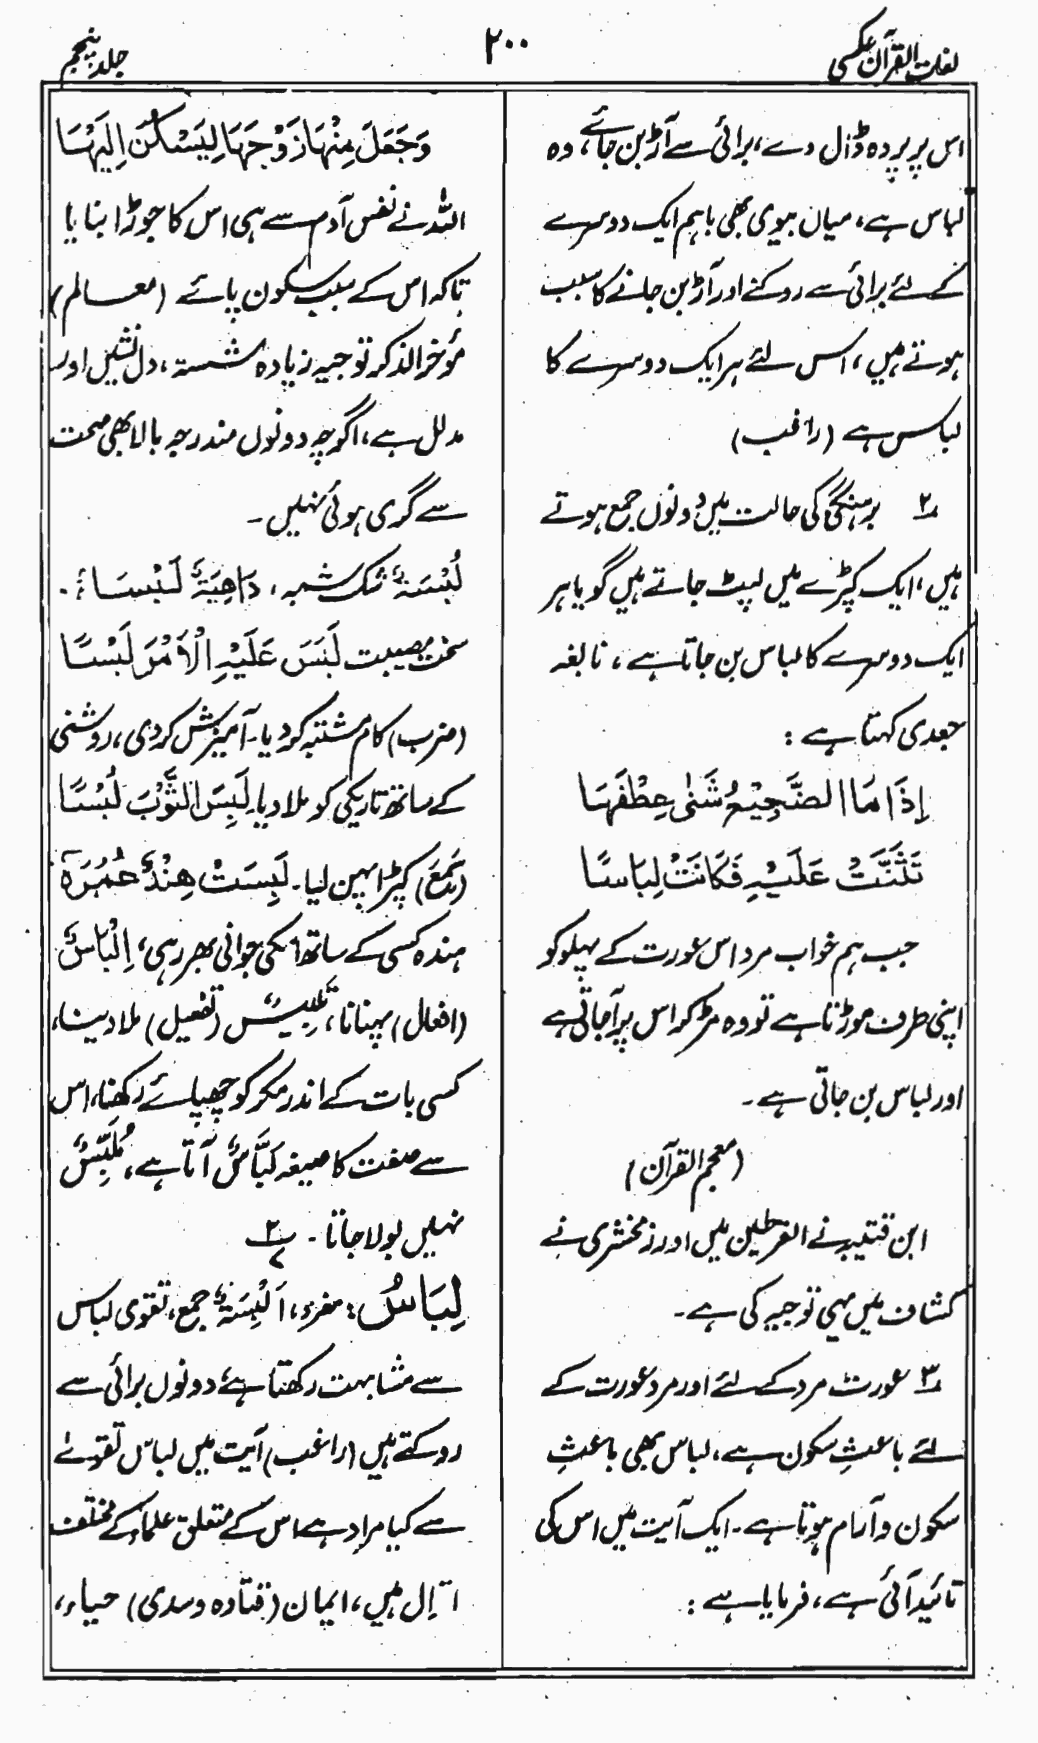 لغات القرآن عکسی
۲۰۰
جلد پنجم
اس پر پردہ ڈال دے، برائی سے آڑ بن جائے، وہ
لباس ہے، میاں بیوی بھی باہم ایک دوسرے
کے لئے برائی سے روکنے اور آڑ بن جانے کا سبب
ہوتے ہیں، اس لئے ہر ایک دوسرے کا
لباس ہے (راغب)
۲ برہنگی کی حالت میں دونوں جمع ہوتے
ہیں، ایک کپڑے میں لپٹ جاتے ہیں گویا ہر
ایک دوسرے کا لباس بن جاتا ہے، نابغہ
جعدی کہتا ہے :
إِذَا مَا الضَّجِيْعُ ثَنٰى عِطْفَهَا
تَثَنَّتْ عَلَيْهِ فَكَانَتْ لِبَاسًا
جب ہم خواب مرد اس عورت کے پہلو کو
اپنی طرف موڑتا ہے تو وہ مڑ کر اس پر آجاتی ہے
اور لباس بن جاتی ہے۔
(معجم القرآن)
ابن قتیبہ نے القرطین میں اور زمخشری نے
کشاف میں یہی توجیہ کی ہے۔
۳ عورت مرد کے لئے اور مرد عورت کے
لئے باعثِ سکون ہے، لباس بھی باعثِ
سکون و آرام ہوتا ہے۔ ایک آیت میں اس کی
تائید آئی ہے، فرمایا ہے :
وَجَعَلَ مِنْهَا زَوْجَهَا لِيَسْكُنَ إِلَيْهَا
اللہ نے نفس آدم سے ہی اس کا جوڑا بنایا
تاکہ اس کے سبب سکون پائے (معالم)
مؤخر الذکر توجیہ زیادہ شستہ، دل نشیں اور
مدلل ہے، اگرچہ دونوں مندرجہ بالا بھی صحت
سے گری ہوئی نہیں۔
لُبْسَةٌ شک شبہ، دَاهِيَةٌ لَبْسَاءُ۔
سخت مصیبت لَبَسَ عَلَيْهِ الْاَمْرَ لَبْسًا
(ضرب) کام مشتبہ کردیا۔ آمیزش کردی، روشنی
کے ساتھ تاریکی کو ملا دیا۔ لَبِسَ الثَّوْبَ لُبْسًا
(سَمِعَ) کپڑا پہن لیا۔ لَبِسَتْ هِنْدٌ عُمُرَهٗ
ہندہ کسی کے ساتھ اسکی جوانی بھر رہی، اِلْبَاسٌ
(افعال) پہنانا، تَلْبِیْسٌ (تفعیل) ملا دینا،
کسی بات کے اندر مکر کو چھپائے رکھنا، اس
سے صفت کا صیغہ لَبَّاسٌ آتا ہے، مُلَبِّسٌ
نہیں بولا جاتا۔ ۲/۷
لِبَاسُ : مفرد، اَلْبِسَةٌ جمع، تقوی لباس
سے مشابہت رکھتا ہے دونوں برائی سے
روکتے ہیں (راغب) آیت میں لباس تقویٰ
سے کیا مراد ہے اس کے متعلق علماء کے مختلف
اقوال ہیں، ایمان (قتادہ و سدی) حیاء،